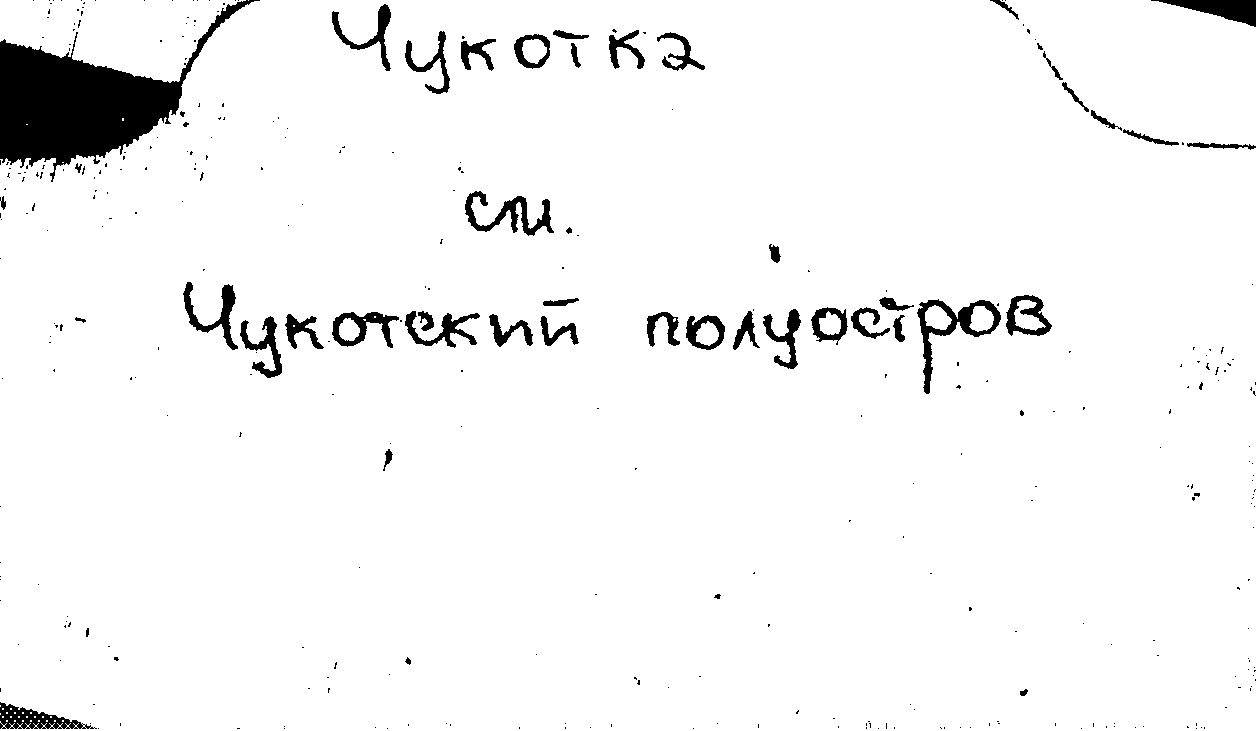 Чукотка
см.
Чукотский полуостров